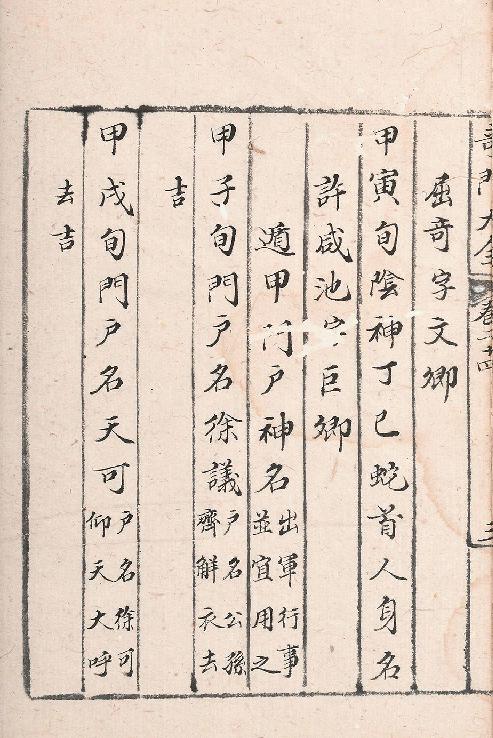 奇門大全 卷二十四
屈奇字文卿
甲寅旬陰神丁巳蛇首人身名
許咸池字巨卿
遁甲門戶神名出軍行事並宜用之
甲子旬門戶名徐議戶名公孫齊解衣去
吉
甲戌旬門戶名天可戶名徐可仰天大呼
去吉